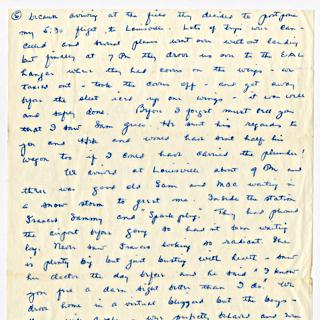 ⑥ dream arriving at the field they decided to postpone
my 5:30 flight to Louisville. Lots of trips were can-
celled and several planes went over without landing
but finally at 7 PM they drove us over to the EAL
hangar where they had covers on the wings - we
taxied out - took the covers off - and got away
before the sleet iced up our wings. It was well
and safely done. Before I forget must tell you
that I saw Sam Green. He sent his regards to
you and and would have sent half his
wagon too if I could have carried the plunder!
We arrived at Louisville about 9 PM and
there was good old Sam and Mac waiting in
a snow storm to greet me. Inside the station
Frances Sammy and "Sparkplug". They had phoned
the airport before going so hadn't been waiting
long. Never saw Frances looking so radiant. She
is plenty big but just busting with health - saw
her doctor the day before and he said "I know
you for a darn sight better than I do." We
drove home in a virtual blizzard but the boys -
were perfectly behaved and